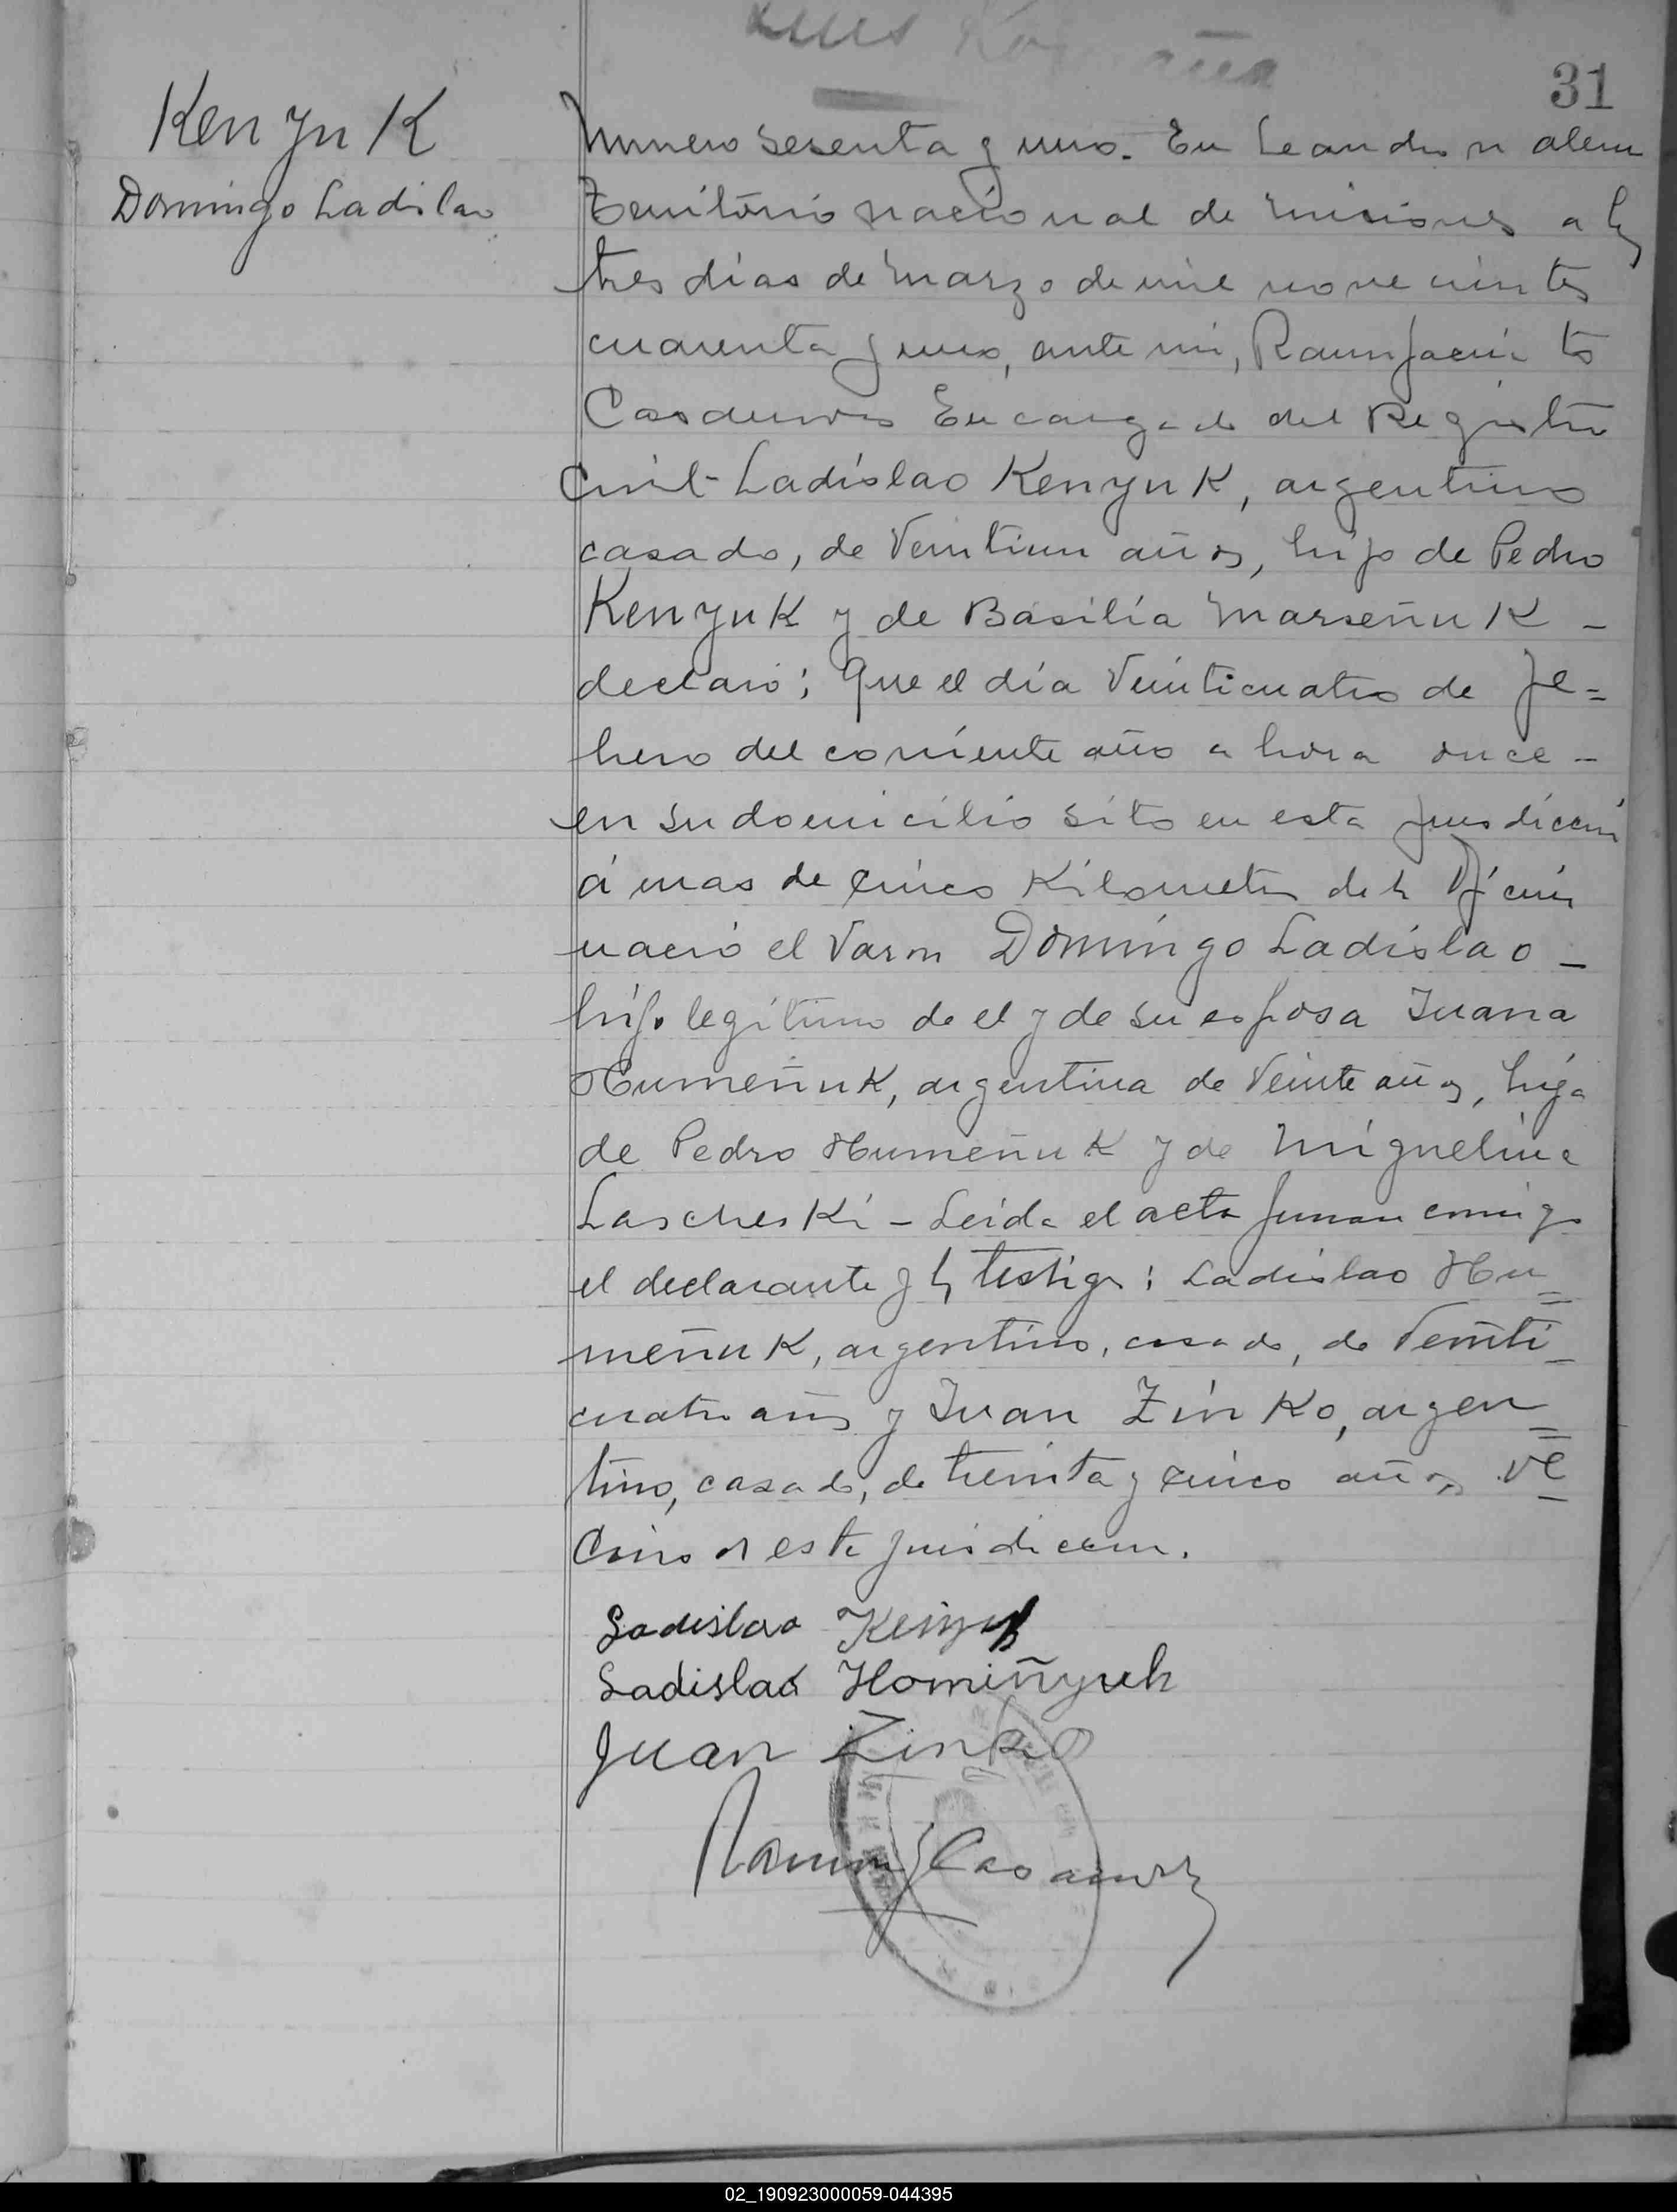 31
Kenyuk
Domingo Ladislao
Numero sesenta y uno. En Leandro n alem
Territorio nacional de Misiones a los
tres dias de Marzo de mil novecientos
cuarenta y uno, ante mi, Ramon Jacinto
Encargado del Registro
Civil - Ladislao Kenyuk, argentino
casado, de Veintiun años, hijo de Pedro
Kenyuk y de Basilia Marseñuk -
declaró: Que el día Veinticuatro de Fe=
brero del corriente año a hora once -
en su domicilio sito en esta jurisdiccion
á mas de cinco Kilometros de la Oficina
nació el Varon Domingo Ladislao -
hijo legitimo de el y de su esposa Juana
Humeñuk, argentina de Veinte años, hija
de Pedro Humeñuk y de Miguelina
Lascheski - Leida el acta firman conmigo
el declarante y los testigos: Ladislao Hu=
meñuk, argentino, casado, de Veinti-
cuatro años y Juan Zinko, argen=
tino, casado, de treinta y cinco años ve-
cinos de esta jurisdiccion.
Ladislao Kenyuk
Ladislao Homiñyuk
Juan Zinko
Ramon J
02_190923000059-044395